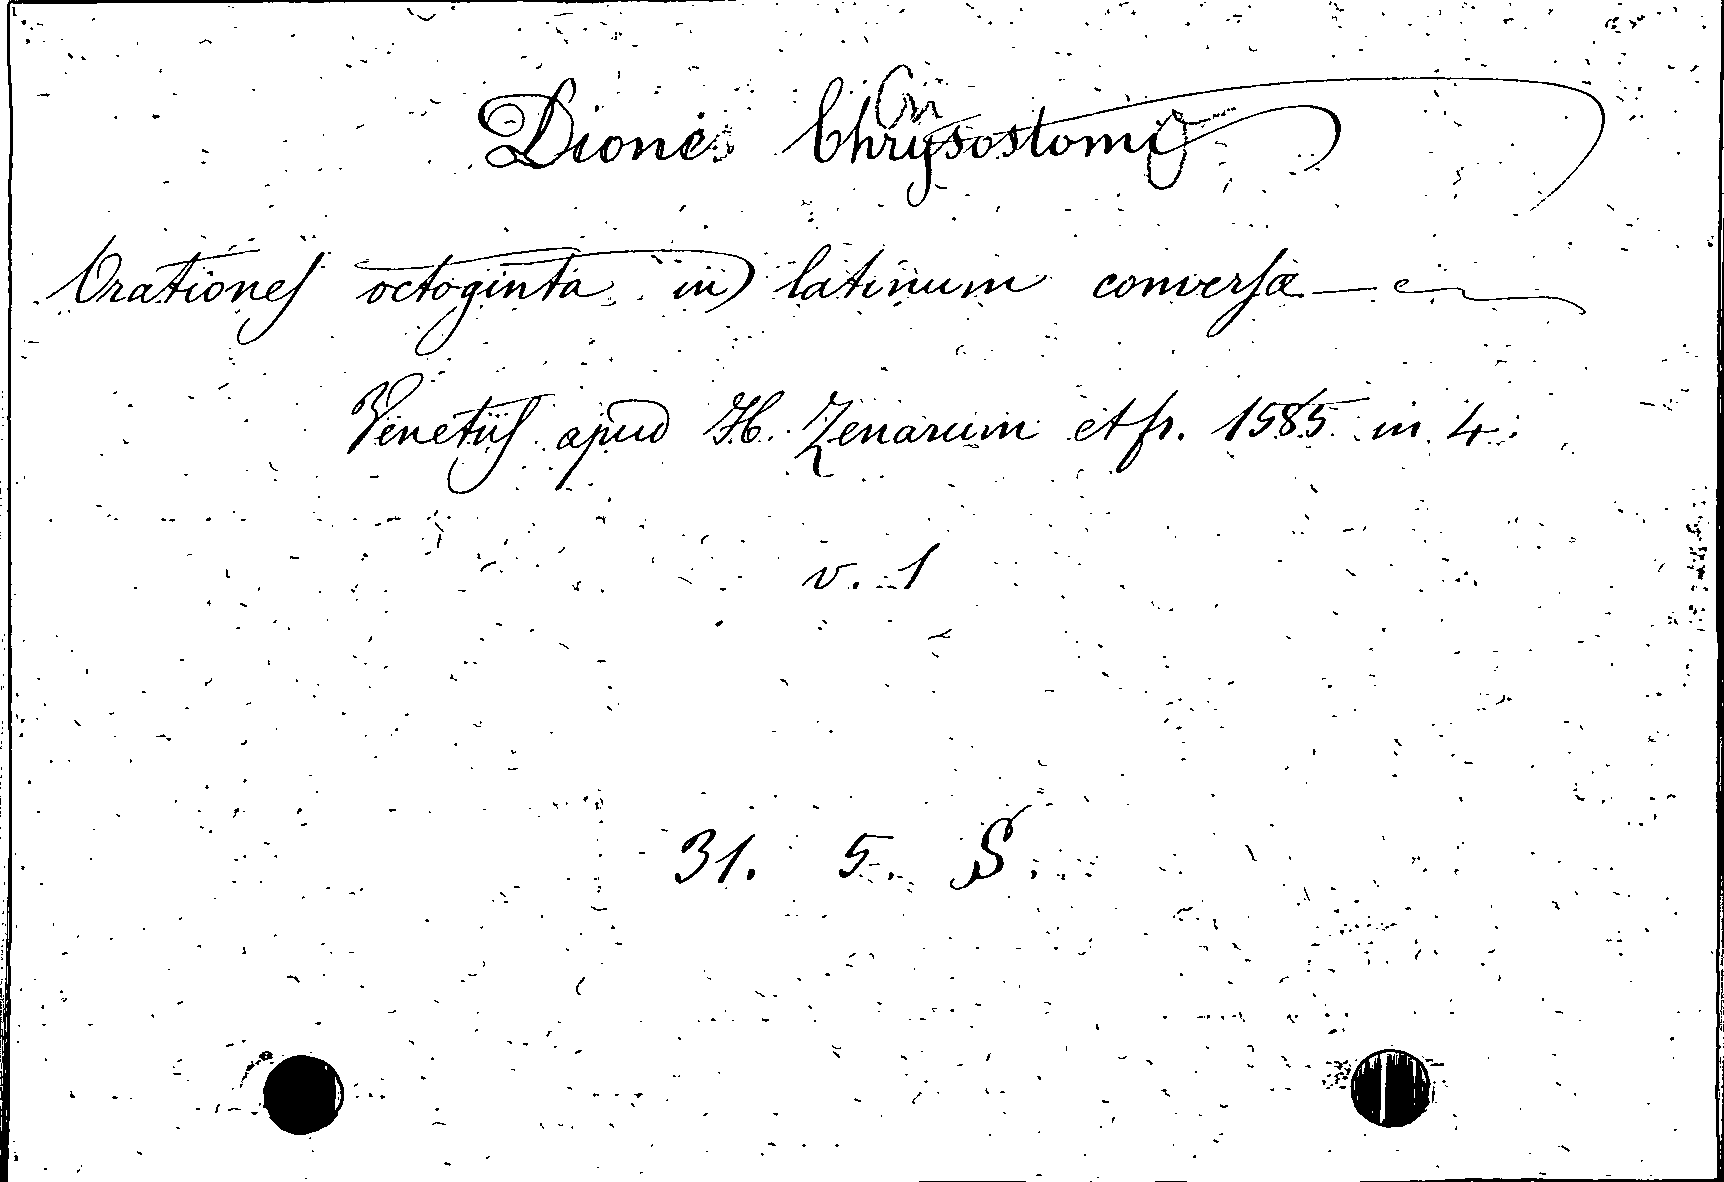 Dionis Chrysostomi
Orationes octoginta in latinum conversæ
Venetiis apud H. Zenarum et fr. 1585 in 4.
v. 1
31. 5. S.